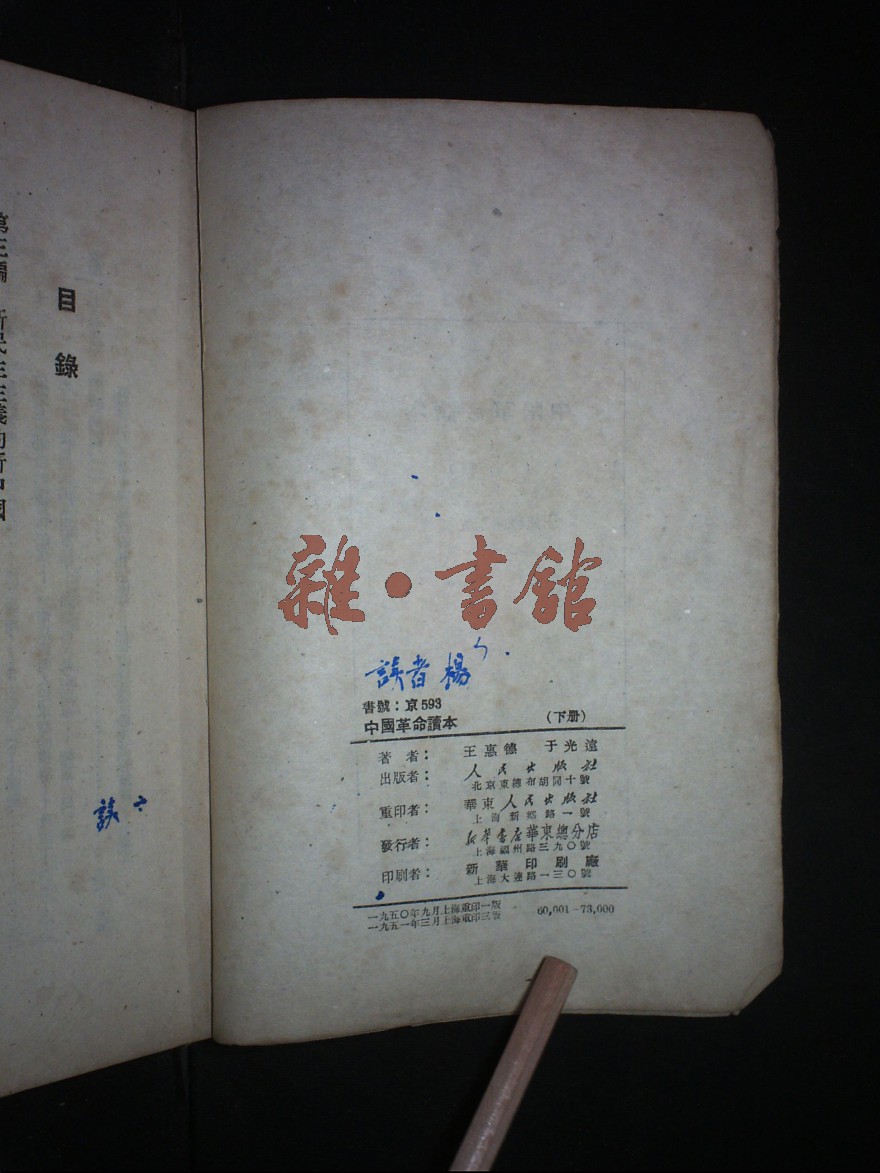 目錄
第三編 新民主主義的新中國
雜·書館
讀者 楊
書號：京593
中國革命讀本 （下册）
著者： 王惠德 于光遠
出版者： 人民出版社
北京東總布胡同十號
重印者： 華東人民出版社
上海新鄉路一號
發行者： 新華書店華東總分店
上海福州路三九〇號
印刷者： 新華印刷廠
上海大連路一三〇號
一九五〇年九月上海重印一版
一九五一年三月上海重印三版
60,001-73,000